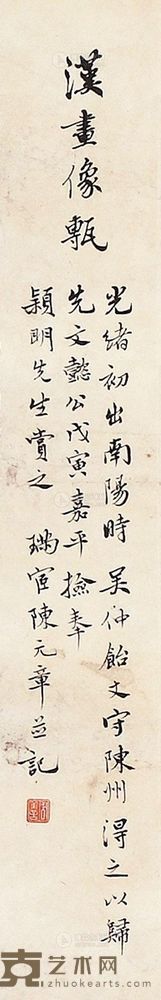 漢畫像甎
光緒初出南陽時吴仲飴丈守陳州得之以歸
先文懿公戊寅嘉平撿奉
穎明先生賞之 瑞宧陳元章並記
克艺术网
www.zhuokearts.com